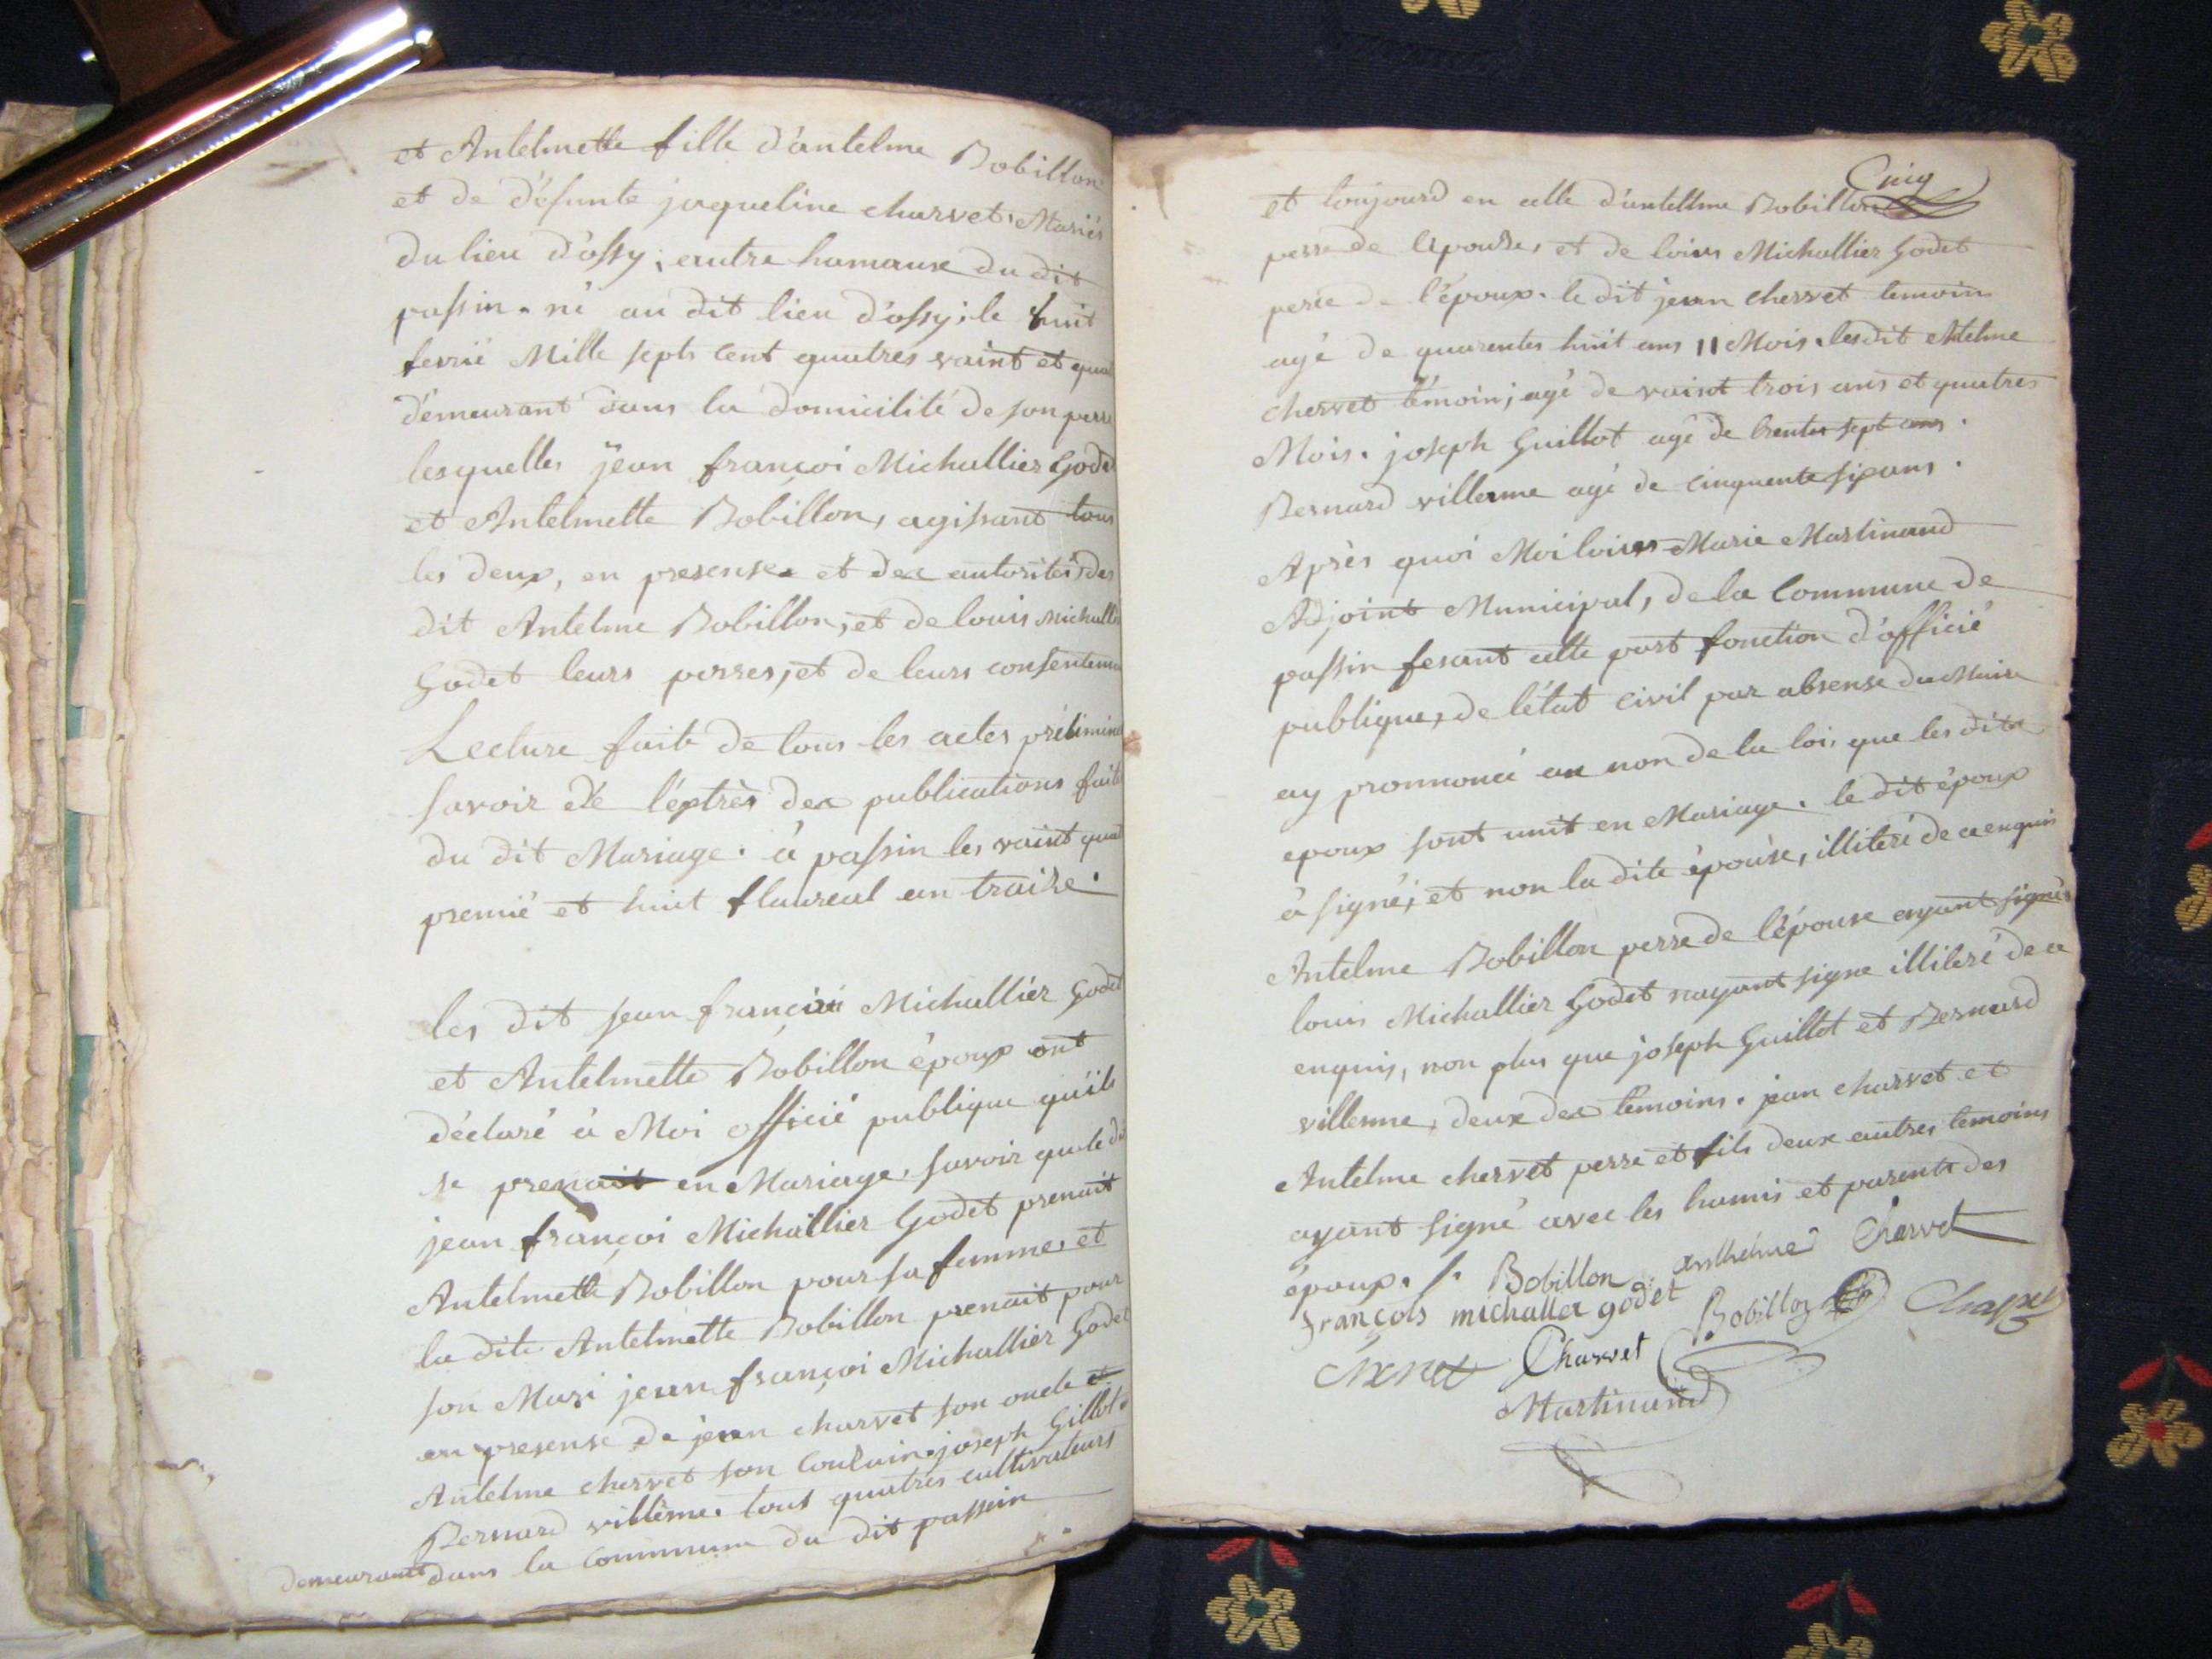 et Antelmette fille d'antelme Bobillon
et de défunte jaqueline charvet, Mariés
du lieu d'ossy; autre hamaux du dit
passin. né au dit lieu d'ossy; le huit
fevrié Mille septs cent quatres vaint et quat
démeurant dans la domicilité de son perre
lesquelles jean françoi Michallier Godet
et Antelmette Bobillon, agissant tous
les deux, en presense et des autorités des
dit Antelme Bobillon, et de louis Michallie
Godet leurs perres, et de leurs consenteme
Lecture faite de tous les actes prélimine
savoir de l'éxtrès des publications faite
du dit Mariage. à passin les vaint quat
premié et huit flaureal an traize.
les dit jean françoi Michallier Godet
et Antelmette Bobillon époux ont
déclaré à Moi officié publique qu'ils
se prenait en Mariage, savoir que le dit
jean françoi Michallier Godet prenait
Antelmette Bobillon pour sa femme, et
la dite Antelmette Bobillon prenait pour
son Mari jean françoi Michallier Godet
en presense de jean charvet son oncle et
Antelme chervet son couzain joseph Gillot.
Bernard villerme. tout quatres cultivateurs
demeurants dans la commune du dit passin
Cinq
et toujourd en celle d'antelme Bobillon
perre de l'epouse, et de loius Michallier Godet
perre de l'époux. le dit jean chervet temoin
agé de quarentes huit ans 11 Mois. les dit Atelme
chervet témoin; agé de vaint trois ans et quatres
Mois. joseph Guillot agé de trentes sept ans.
Bernard villerme agé de cinquente six ans.
Après quoi Moi loius Marie Martinand
Adjoint Municipal, de la Commune de
passin fesant cette part fonction d'officié
publique, de létat civil par absense du Maire
ay pronnoncé au non de la loi, que les dits
epoux sont unit en Mariage. le dit époux
à signé, et non la dite épouse, illiteré de ce enquis
Antelme Bobillon perre de l'épouse ayant signés
louis Michallier Godet nayant signe illiteré de ce
enquis, non plus que joseph Guillot et Bernard
villerme, deux des témoins. jean charvet et
Antelme chervet perre et fils deux autres temoins
ayant signé avec les hamis et parents des
époux. /. Bobillon anthelme Charvet
françois michaller godet Bobillon
Charvet
Martinand